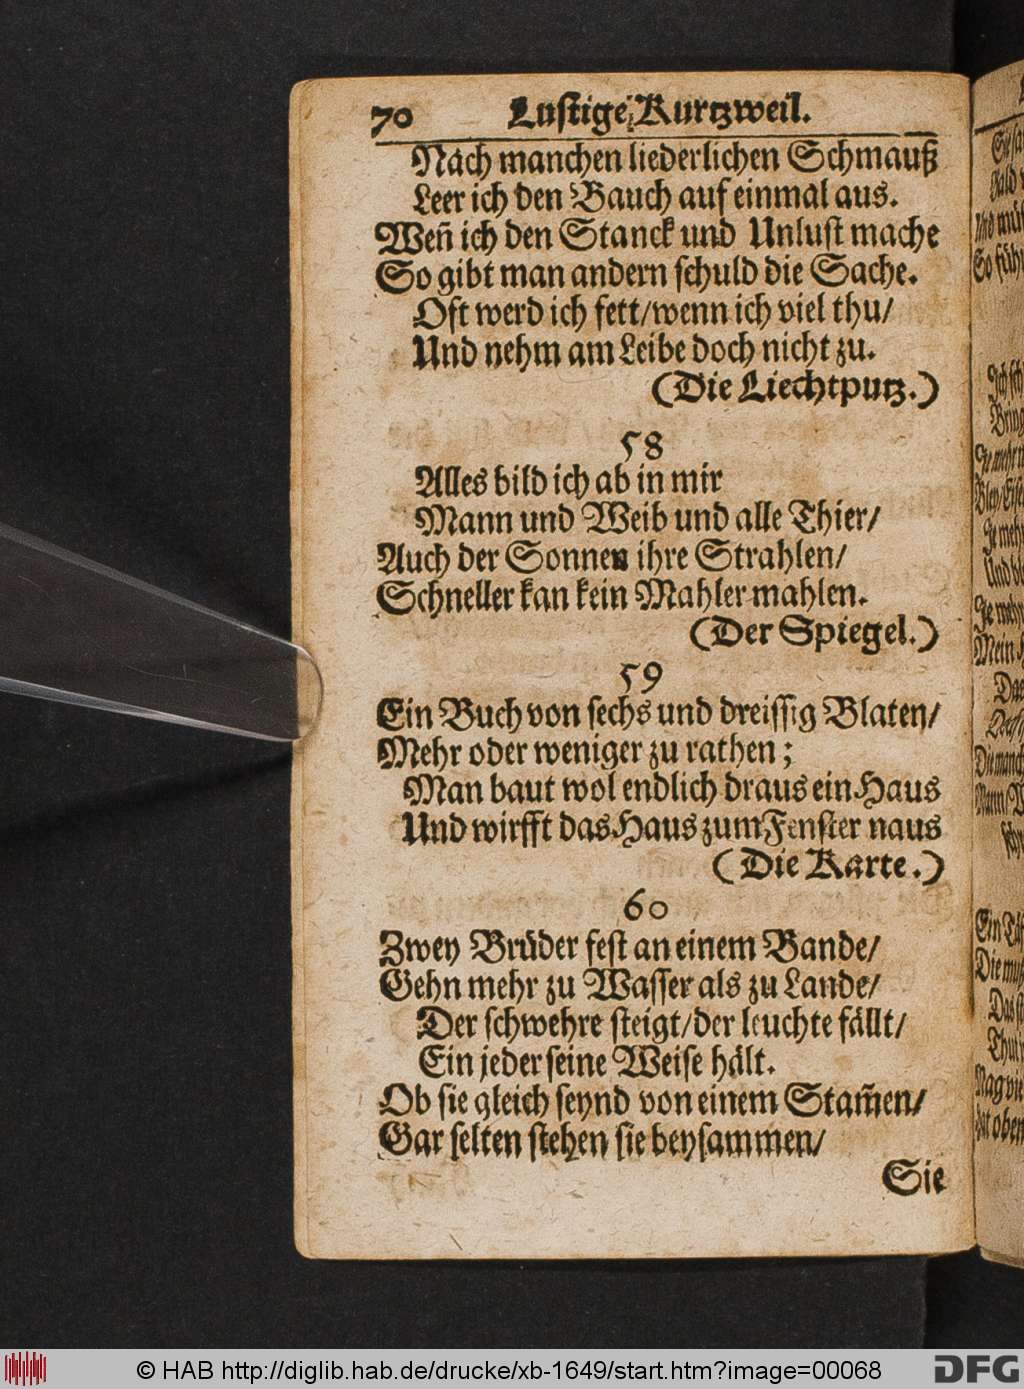 70 Lustige Kurtzweil.
Nach manchen liederlichen Schmauß
Leer ich den Bauch auf einmal aus.
Weñ ich den Stanck und Unlust mache
So gibt man andern schuld die Sache.
Oft werd ich fett/wenn ich viel thu/
Und nehm am Leibe doch nicht zu.
(Die Liechtputz.)
58
Alles bild ich ab in mir
Mann und Weib und alle Thier/
Auch der Sonnen ihre Strahlen/
Schneller kan kein Mahler mahlen.
(Der Spiegel.)
59
Ein Buch von sechs und dreissig Blaten/
Mehr oder weniger zu rathen;
Man baut wol endlich draus ein Haus
Und wirfft das Haus zum Fenster naus
(Die Karte.)
60
Zwey Brüder fest an einem Bande/
Gehn mehr zu Wasser als zu Lande/
Der schwehre steigt/der leuchte fällt/
Ein jeder seine Weise hält.
Ob sie gleich seynd von einem Stam̃en/
Gar selten stehen sie beysammen/
Sie
© HAB http://diglib.hab.de/drucke/xb-1649/start.htm?image=00068
DFG